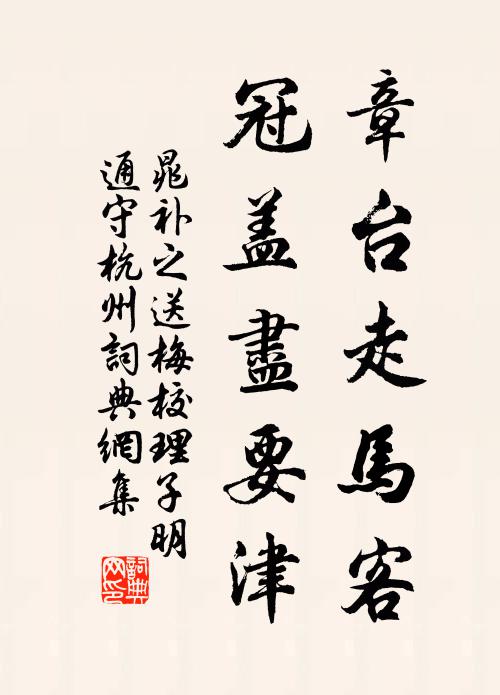 章台走馬客
冠盖盡要津
晁补之送梅校理子明
通守杭州詞典網集
詞典
网印